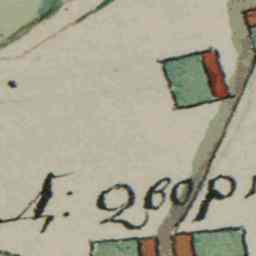 Д: двор